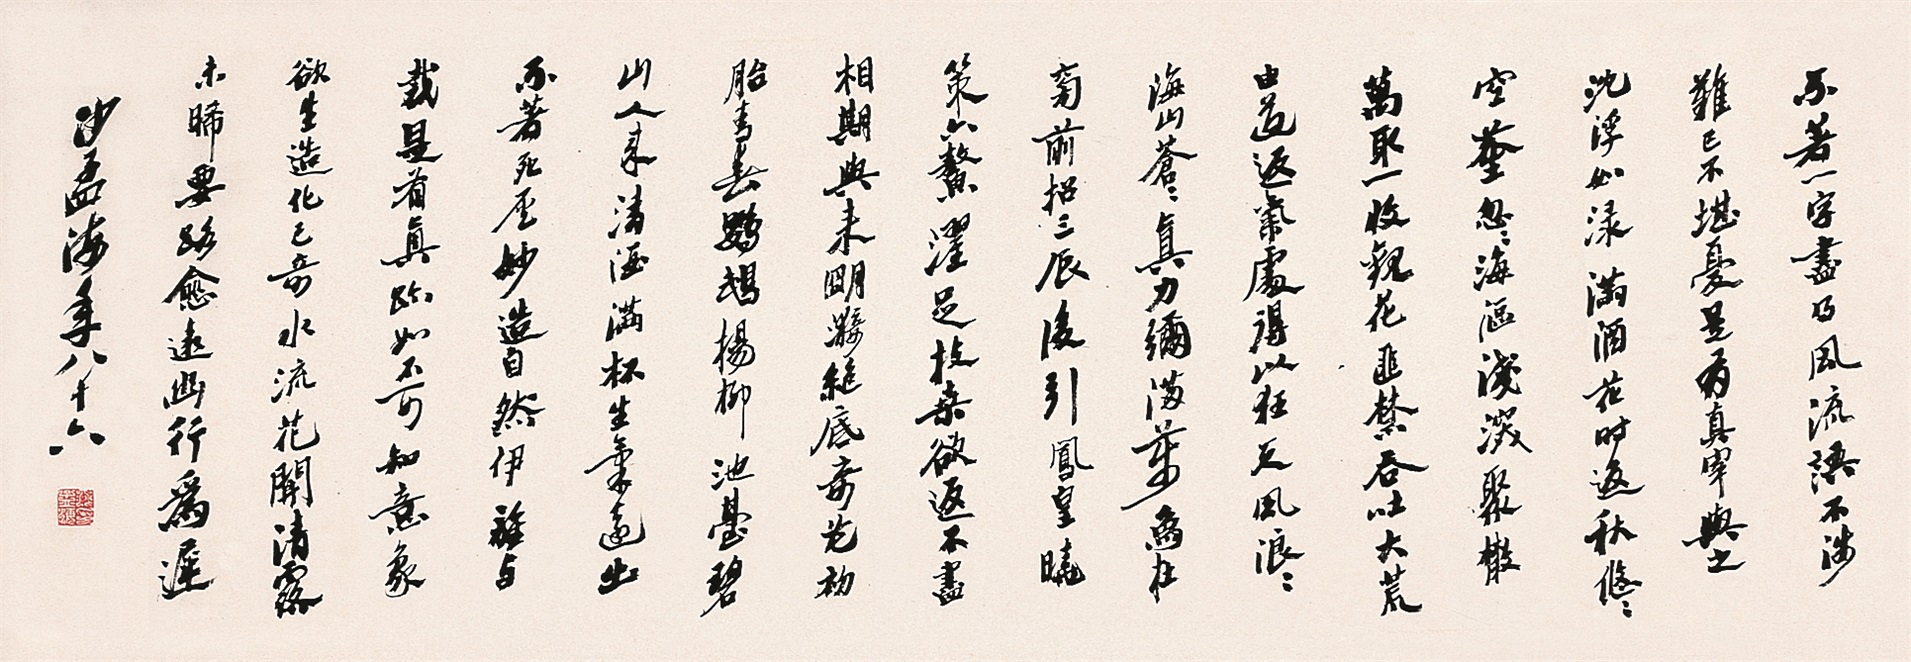 不著一字盡得風流語不涉
難已不堪憂是有真宰與之
沈浮如淥滿酒花時返秋悠悠
空塵忽忽海漚淺深聚散
萬取一收觀花匪禁吞吐大荒
由道返氣處得以狂天風浪浪
海山蒼蒼真力彌滿萬象在
旁前招三辰後引鳳皇曉
策六鰲濯足扶桑欲返不盡
相期與來明漪絕底奇花初
胎青春鸚鵡楊柳池臺碧
山人來清酒滿杯生氣遠出
不著死灰妙造自然伊誰與
裁是有真跡如不可知意象
欲生造化已奇水流花開清露
未晞要路愈遠幽行為遲
沙孟海年八十六